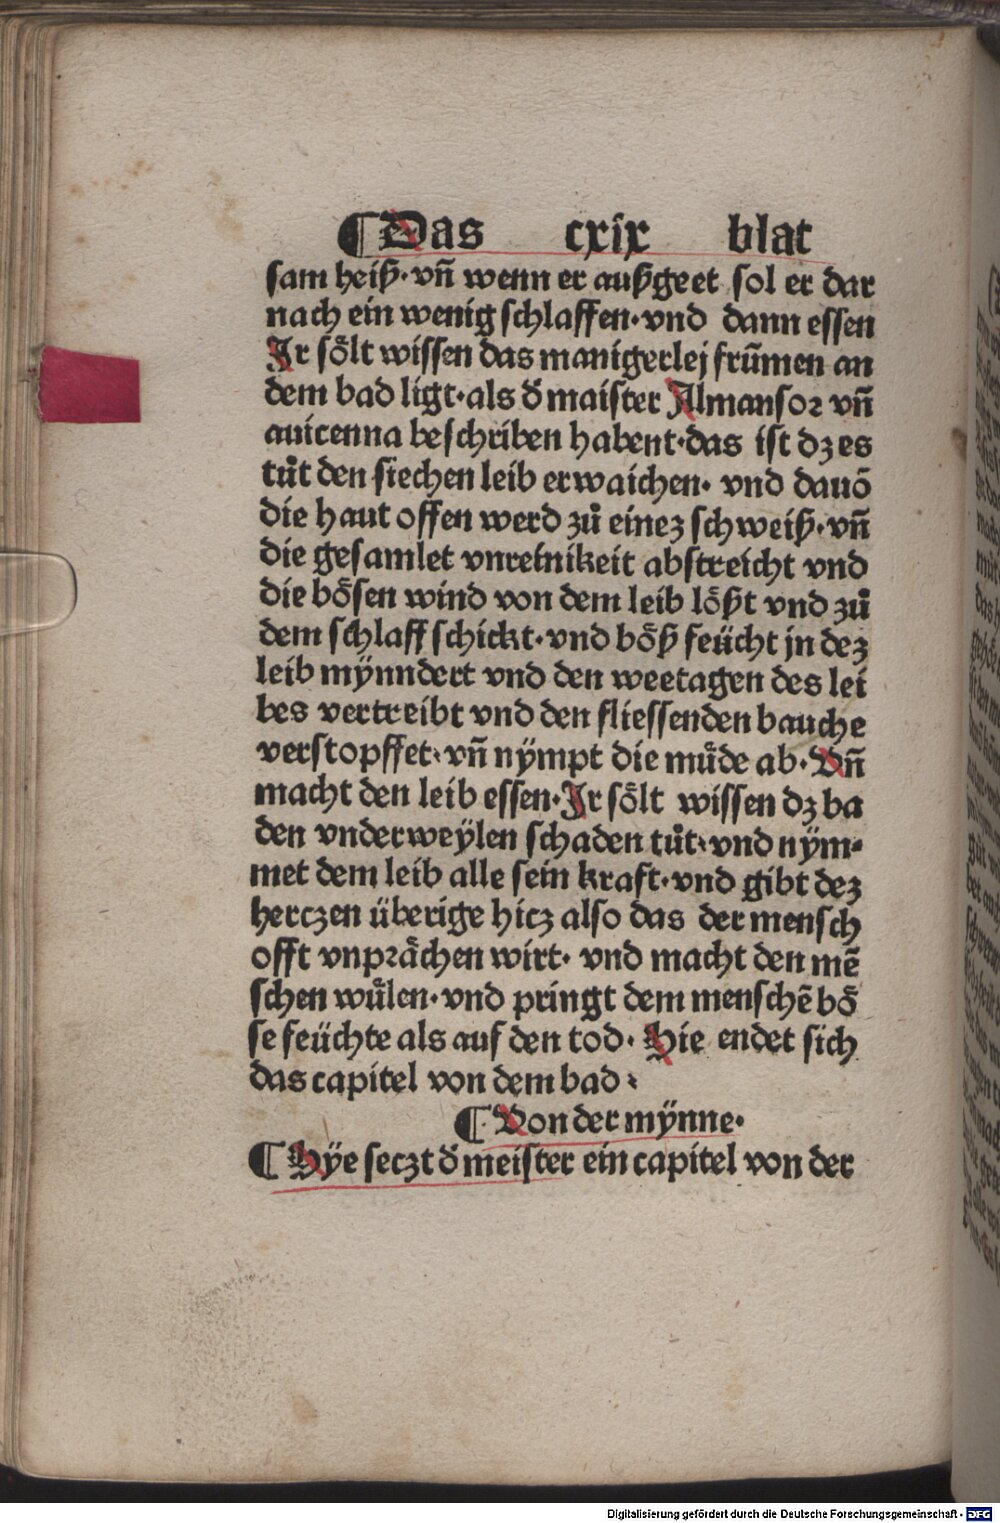 ¶ Das cxix blat
sam heiß·vn̄ wenn er außgeet sol er dar
nach ein wenig schlaffen·vnd dann essen
Ir soͤlt wissen das manigerlej frūmen an
dem bad ligt·als d̕ maister Almansor vn̄
auicenna beschriben habent·das ist dz es
tuͦt den siechen leib erwaichen· vnd dauō
die haut offen werd zuͦ einez schweiß·vn̄
die gesamlet vnreinikeit abstreicht vnd
die boͤsen wind von dem leib loͤßt vnd zuͦ
dem schlaff schickt·vnd boͤß feücht jn dez
leib mÿnndert vnd den weetagen des lei
bes vertreibt vnd den fliessenden bauche
verstopffet·vn̄ nÿmpt die muͤde ab·Vn̄
macht den leib essen·Ir soͤlt wissen dz ba
den vnderweÿlen schaden tuͦt·vnd nÿm⸗
met dem leib alle sein kraft·vnd gibt dez
herczen überige hicz also das der mensch
offt vnpraͤchen wirt· vnd macht den mē
schen wuͤlen·vnd pringt dem menschē boͤ
se feüchte als auf den tod· Hie endet sich
das capitel von dem bad⸗
¶ Von der mÿnne·
¶ Hÿe seczt d̕ meister ein capitel von der
Digitalisierung gefördert durch die Deutsche Forschungsgemeinschaft - DFG